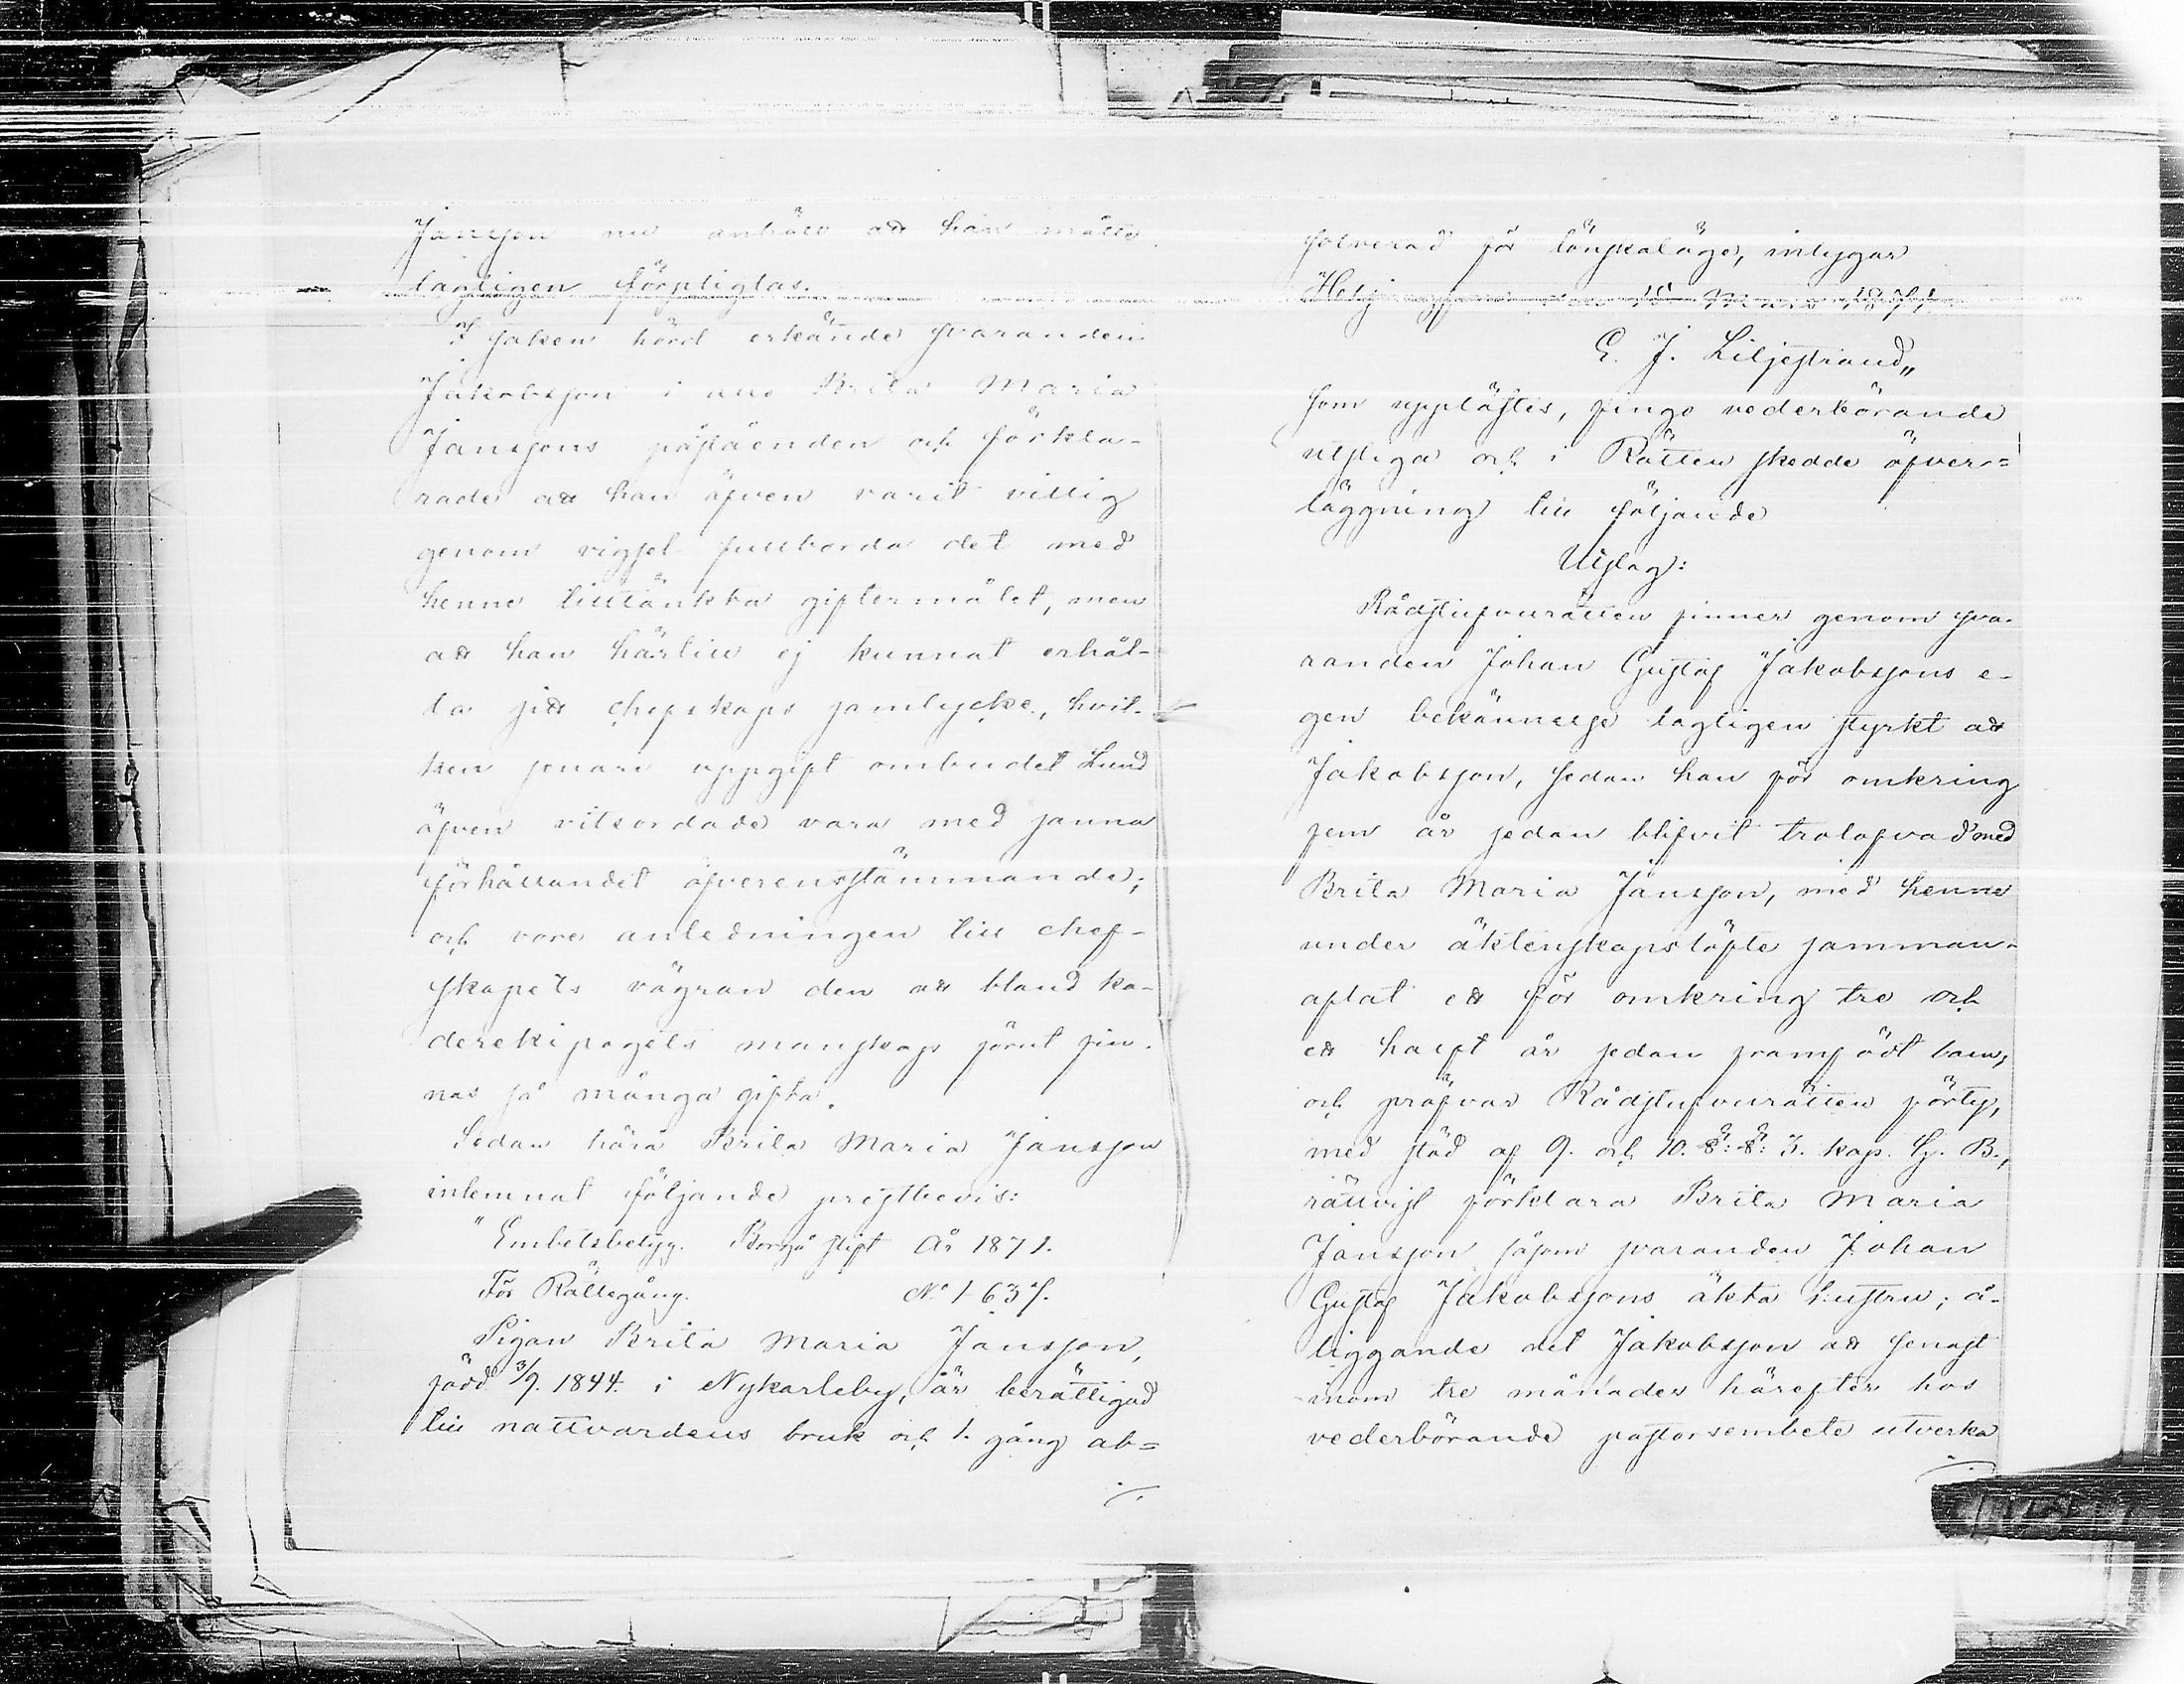 Jansson nu anhöll att han måtte
lagligen förpligtas.
I saken hörd erkände svaranden
Jakobsson i allo Brita Maria
Janssons påståenden och förkla-
rade att han äfven varit villig
genom vigsel fullborda det med
henne tilltänkta giftermålet, men
att han härtill ej kunnat erhål-
la sitt chefskaps samtycke, hvil-
ken senare uppgift ombudet Lund
äfven vitsordade vara med sanna
förhållandet öfverensstämmande;
och vore anledningen till chef-
skapets vägran den att bland ka-
derekipagets manskap förut fin-
nas så många gifta.
Sedan härå Brita Maria Jansson
inlemnat följande prestbevis:
"Embetsbetyg. Borgå stift År 1871.
För Rättegång. No 1637.
Pigan Brita Maria Jansson,
född 3/9. 1844. i Nykarleby, är berättigad
till nattvardens bruk och 1. gång ab-
solverad för lönskaläge, intygar
den 15 Mars 1871.
E. J. Liljestrand"
som upplästes, fingo vederbörande
utstiga och i Rätten skedde öfver-
läggning till följande
Utslag:
Rådstufvurätten finner genom sva-
randen Johan Gustaf Jakobssons e-
gen bekännelse lagligen styrkt att
Jakobsson, sedan han för omkring
fem år sedan blifvit trolofvad med
Brita Maria Jansson, med henne
under äktenskapslöfte samman-
aflat ett för omkring tre och
ett halft år sedan framfödt barn,
och pröfvar Rådstufvurätten förty,
med stöd af 9. och 10. §. §. 3. kap. G. B.,
rättvist förklara Brita Maria
Jansson såsom svaranden Johan
Gustaf Jakobssons äkta hustru; å-
liggande det Jakobsson att senast
inom tre månader härefter hos
vederbörande pastorsembete utverka